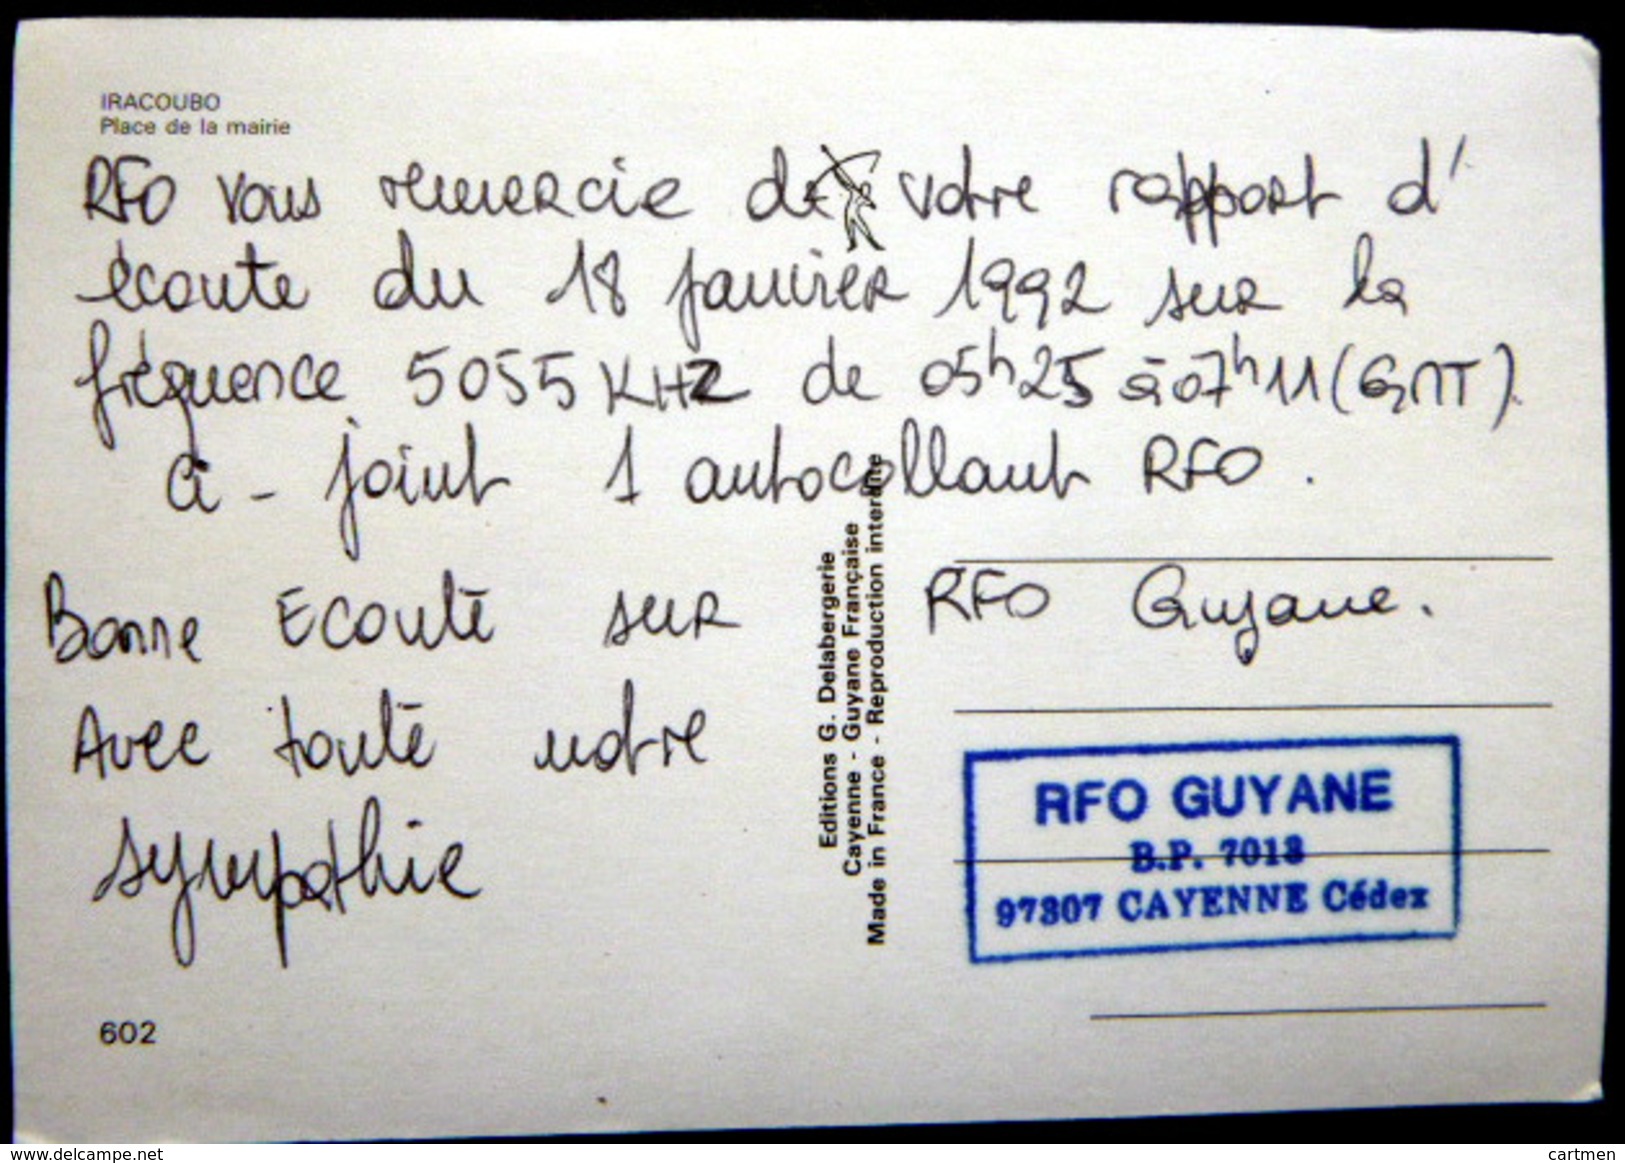 IRACOUBO
Place de la mairie
RFO vous remercie de votre rapport d'
écoute du 18 janvier 1992 sur la
fréquence 5055 KHZ de 05h25 à 07h11 (GMT).
Ci-joint 1 autocollant RFO.
Bonne Ecoute sur RFO Guyane.
Avec toute notre
sympathie
Editions G. Delabergerie
Cayenne - Guyane Française
Made in France - Reproduction interdite
RFO GUYANE
B.P. 7013
97307 CAYENNE Cédex
602
www.delcampe.net
cartmen